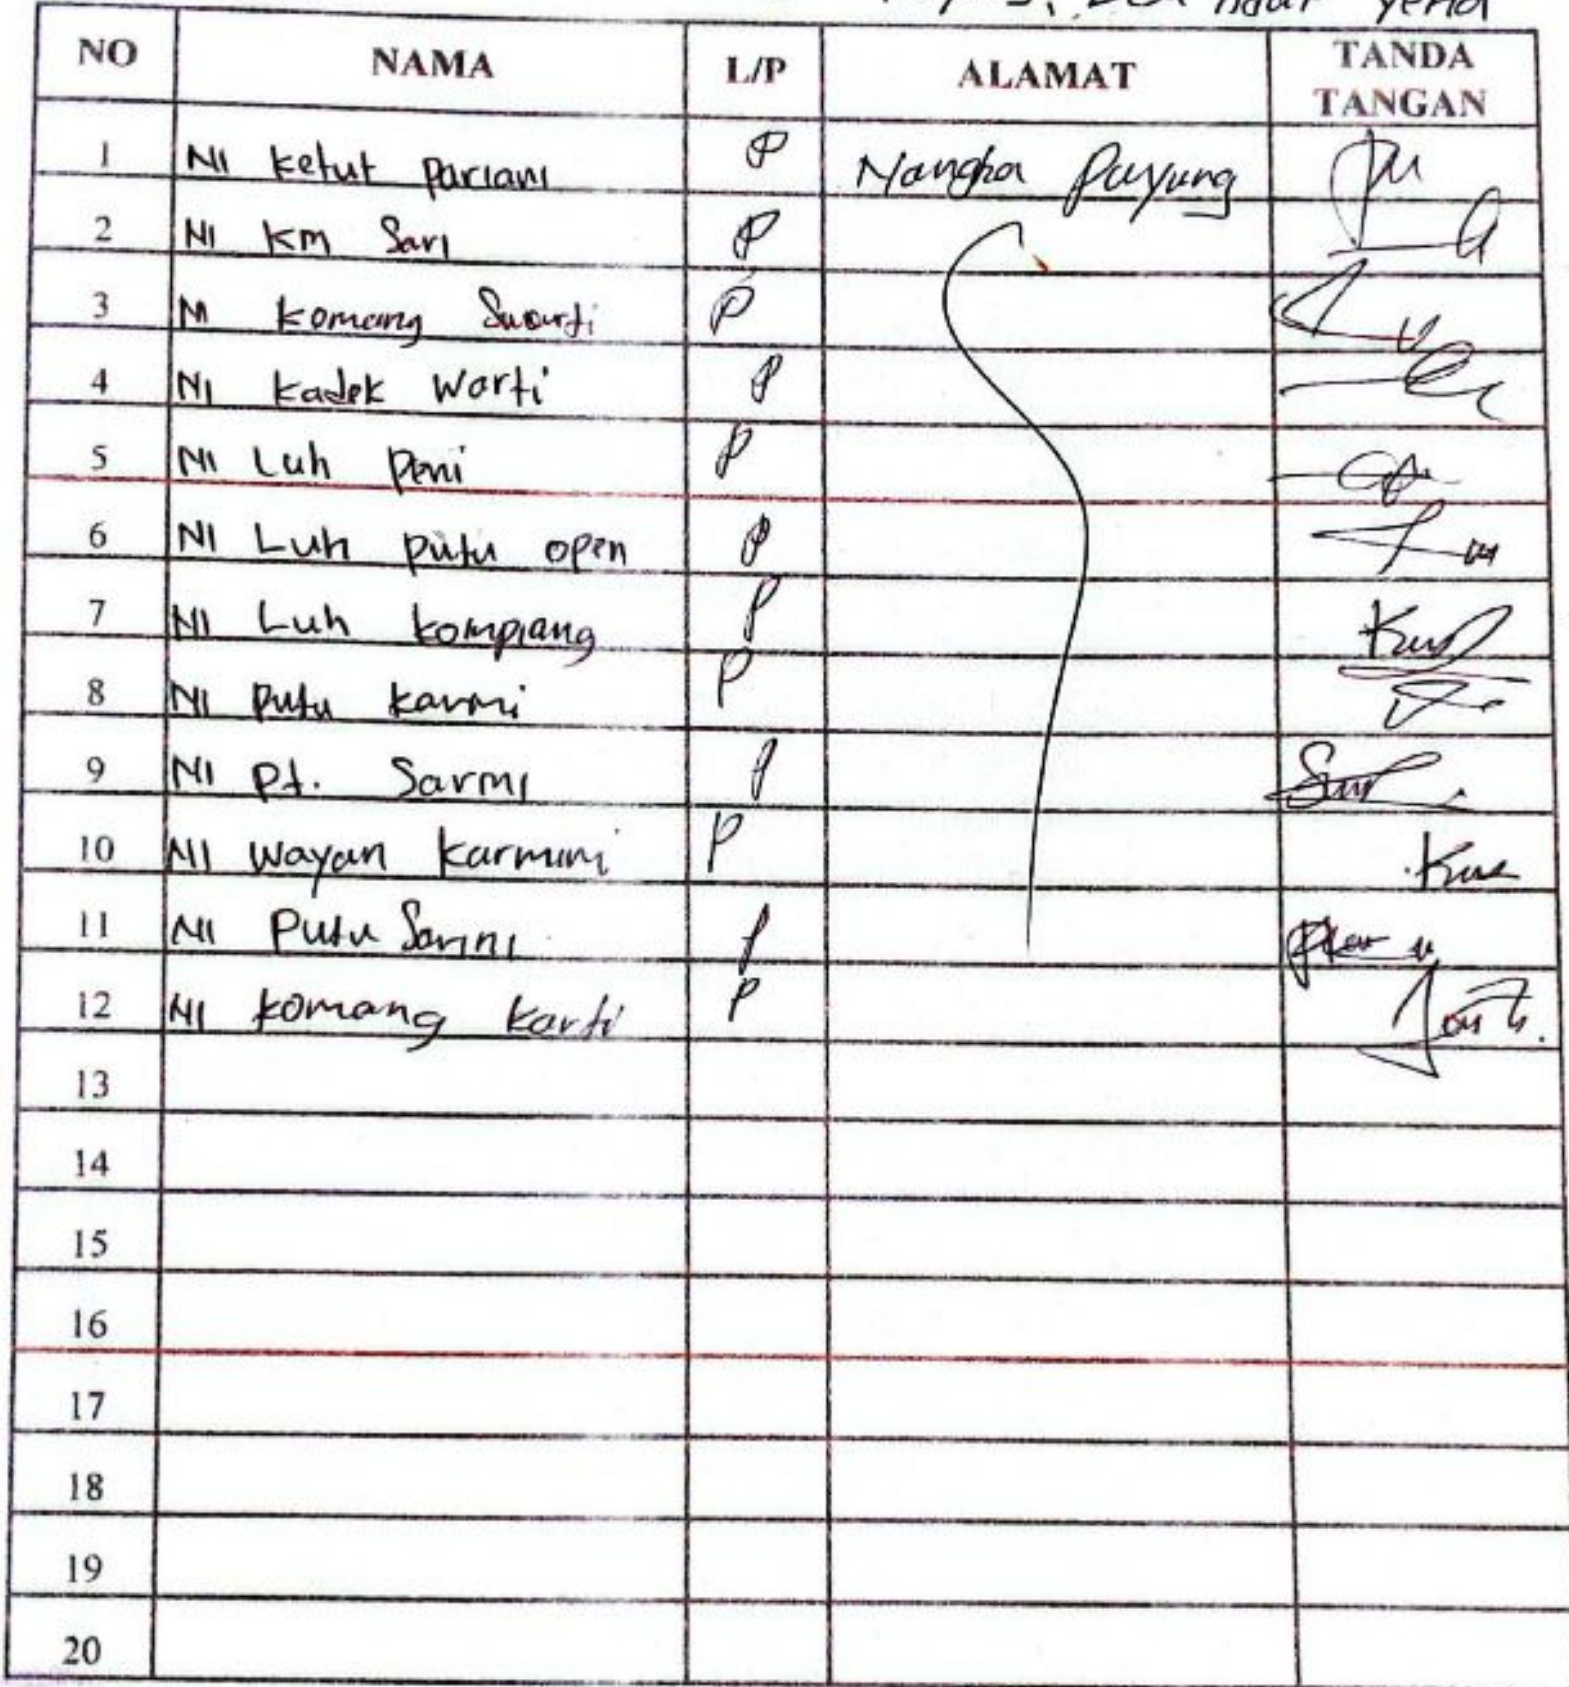 NO NAMA L/P ALAMAT TANDA TANGAN
1 NI Ketut Pariani P Nangka Payung
2 NI KM Sari P
3 NI Komang Suarti P
4 NI Kadek Warti P
5 NI Luh Peni P
6 NI Luh Putu Open P
7 NI Luh Kompiang P
8 NI Putu Karmi P
9 NI Pt. Sarmi P
10 NI Wayan Karmini P
11 NI Putu Sarini P
12 NI Komang Karti P
13
14
15
16
17
18
19
20